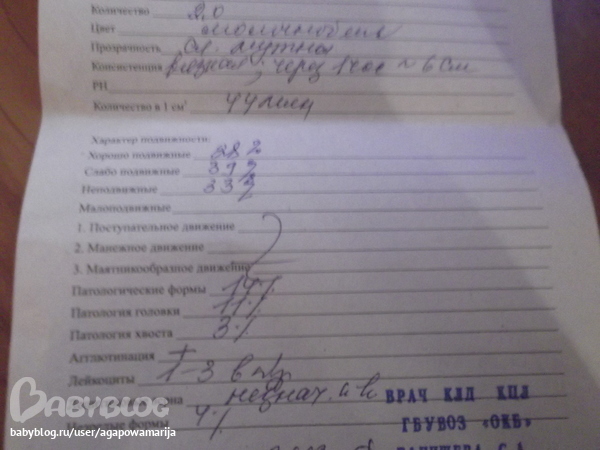 Количество 2,0
Цвет молочнобел
Прозрачность сл. мутная
Консистенция вязкая; через 1 час ~ 6 см
PH
Количество в 1 см³ 44 млн
Характер подвижности:
Хорошо подвижные 28 %
Слабо подвижные 39 %
Неподвижные 33 %
Малоподвижные
1. Поступательное движение
2. Манежное движение
3. Маятникообразное движение
Патологические формы 14 %
Патология головки 11 %
Патология хвоста 3 %
Агглютинация +
Лейкоциты 1-3 в п/з
на незнач. к-во
ВРАЧ КЛД КЦЛ
формы 4 %
ГБУВОЗ «ОКБ»
BABYBLOG
babyblog.ru/user/agapowamarija